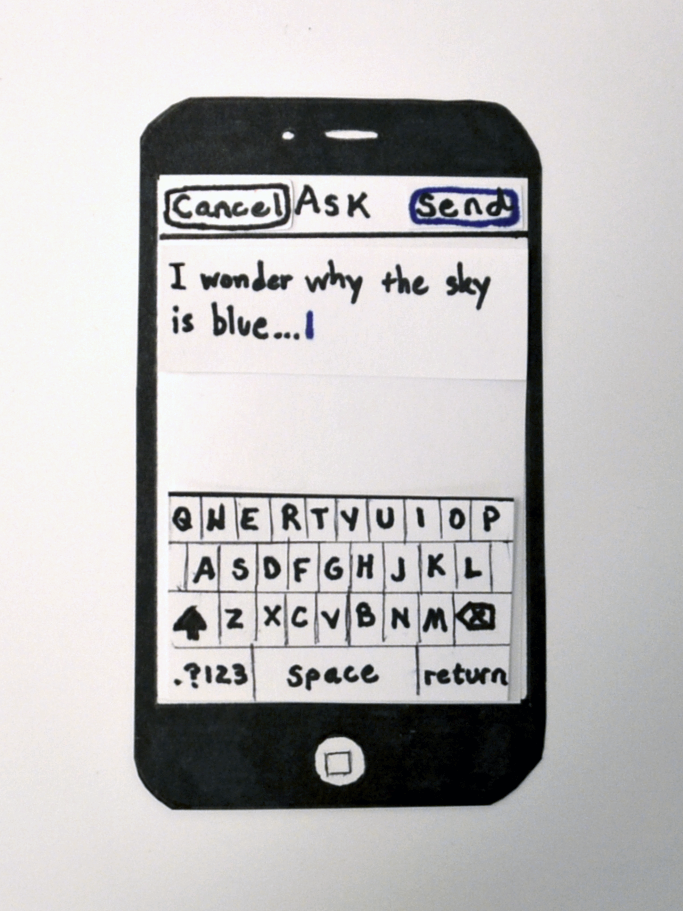 Cancel Ask Send
I wonder why the sky
is blue...
Q W E R T Y U I O P
A S D F G H J K L
Z X C V B N M
.?123 space return